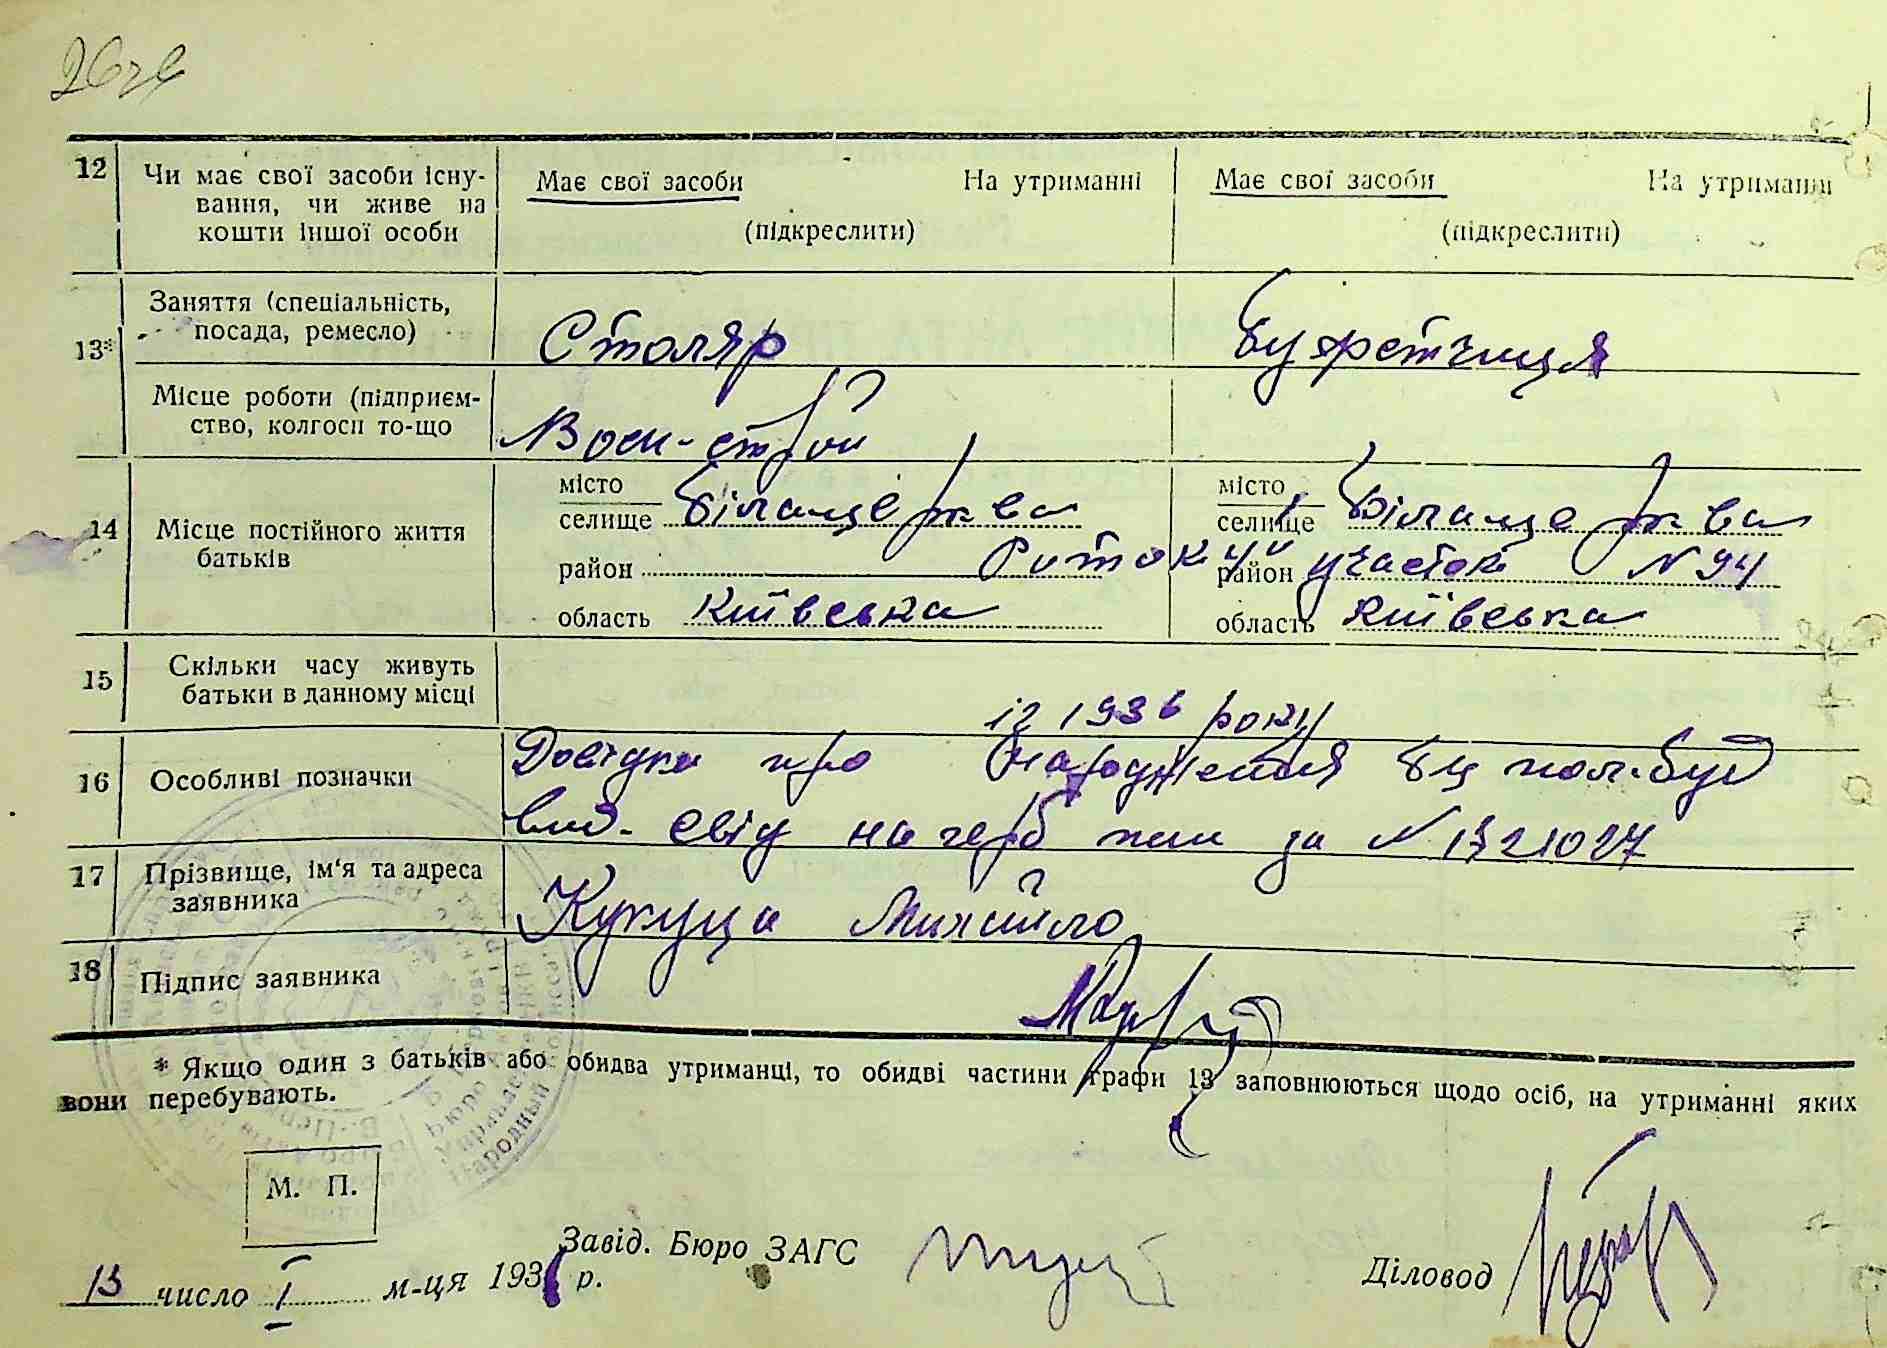 12 Чи має свої засоби існу-
вання, чи живе на
кошти іншої особи
Має свої засоби На утриманні
(підкреслити)
Має свої засоби На утриманні
(підкреслити)
13* Заняття (спеціальність,
посада, ремесло)
Столяр
Буфетчиця
Місце роботи (підприєм-
ство, колгосп то-що
Воен-строй
14 Місце постійного життя
батьків
місто
селище Біла церква
район
область Київська
місто
селище Біла церква
район участок N 94
область Київська
15 Скільки часу живуть
батьки в данному місці
із 1936 року
16 Особливі позначки
Довідка про народження
на герб за N 1321027
17 Прізвище, ім'я та адреса
заявника
Кукуца Михайло
18 Підпис заявника
* Якщо один з батьків або обидва утриманці, то обидві частини графи 13 заповнюються щодо осіб, на утриманні яких
вони перебувають.
М. П.
13 число I м-ця 193 р.
Завід. Бюро ЗАГС
Діловод